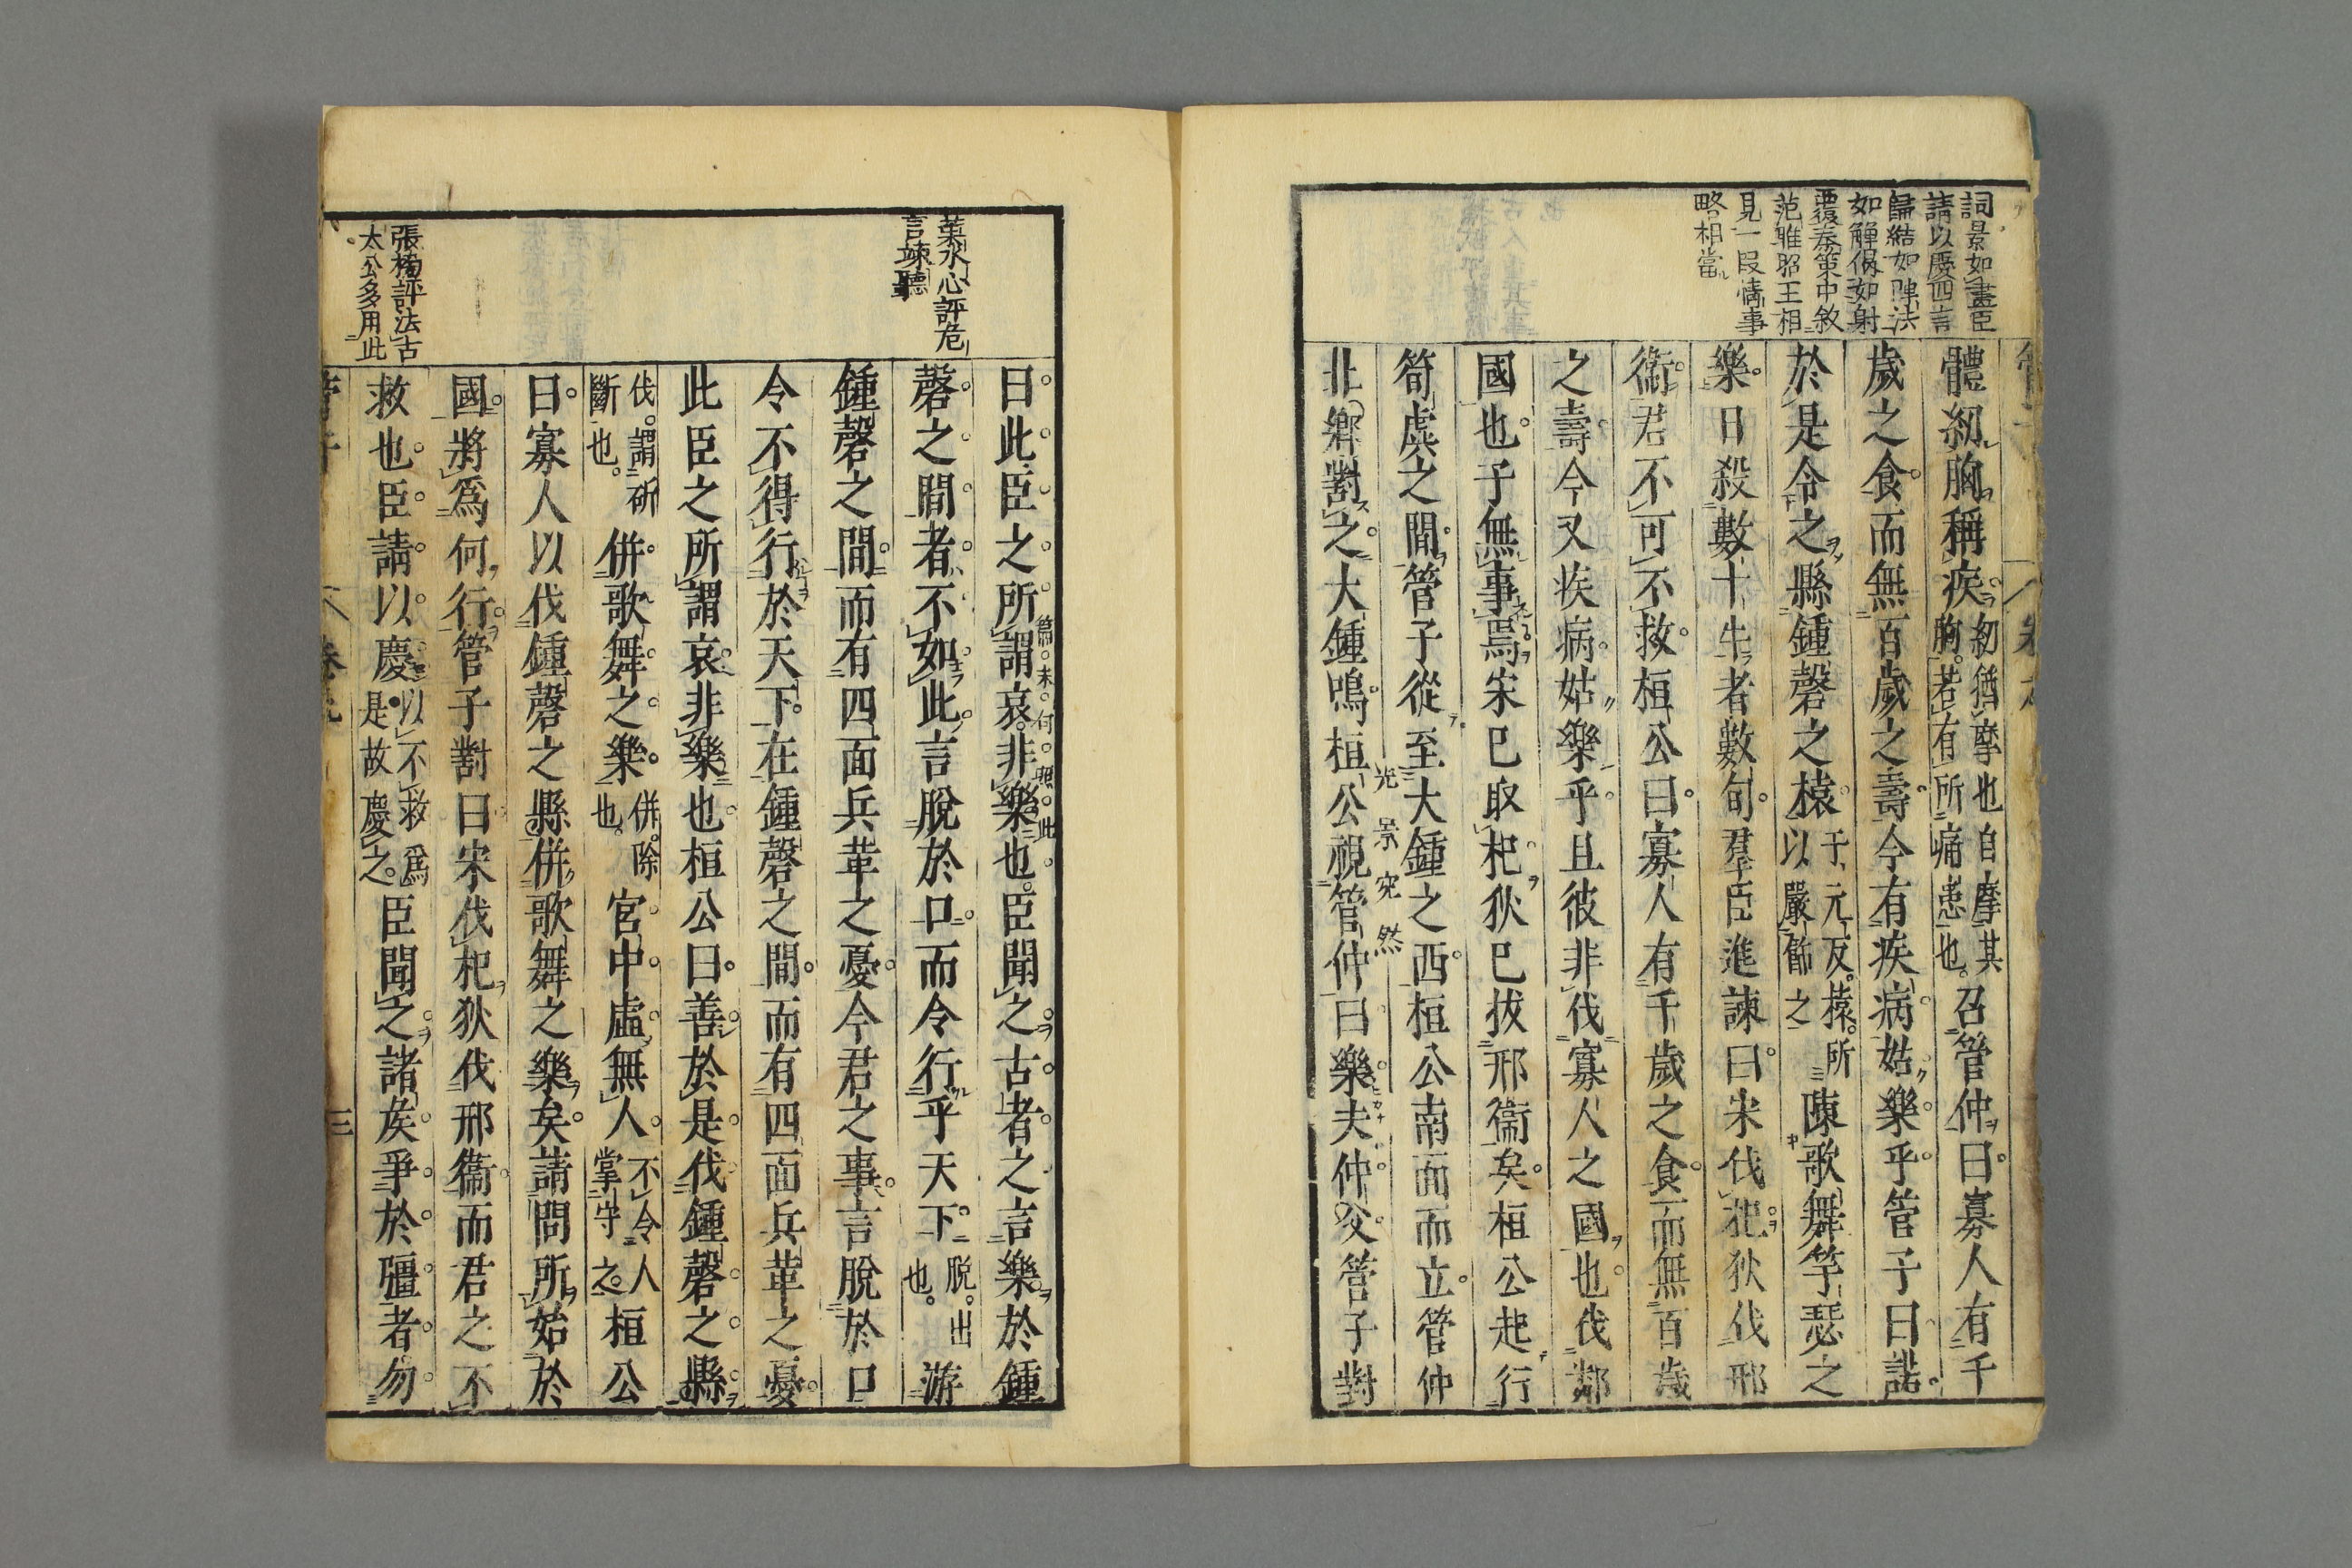 詞景如畫臣
請以慶四言
歸結如陣法
如觧倶如射
覆秦策中敘
范雎昭王相
見一段情事
略相當
體紉胸稱疾紉猶摩也自摩其胸若有所痛患也召管仲曰寡人有千
歲之食而無百歲之壽今有疾病姑樂乎管子曰諾
於是令之縣鍾磬之榬于元反榬所以嚴飾之陳歌舞竽瑟之
樂日殺數十牛者數旬羣臣進諫曰宋伐杞狄伐邢
衞君不可不救桓公曰寡人有千歲之食而無百歲
之壽今又疾病姑樂乎且彼非伐寡人之國也伐鄰
國也子無事焉宋已取杞狄已拔邢衞矣桓公起行
筍虡之間管子從至大鍾之西桓公南面而立管仲
光景宛然
北鄉對之大鍾鳴桓公視管仲曰樂夫仲父管子對
葉水心評危
言竦聽
曰此臣之所謂哀非樂也臣聞之古者之言樂於鍾
篇末何照此
磬之間者不如此言脫於口而令行乎天下脫出也游
鍾磬之間而有四面兵革之憂今君之事言脫於口
令不得行於天下在鍾磬之間而有四面兵革之憂
此臣之所謂哀非樂也桓公曰善於是伐鍾磬之縣
伐謂斫斷也併歌舞之樂併除也宮中虛無人不令人掌守之桓公
曰寡人以伐鍾磬之縣併歌舞之樂矣請問所始於
國將爲何行管子對曰宋伐杞狄伐邢衞而君之不
張榜評法古
太公多用此
救也臣請以慶以不救爲是故慶之臣聞之諸矦爭於彊者勿
管子
卷九
三